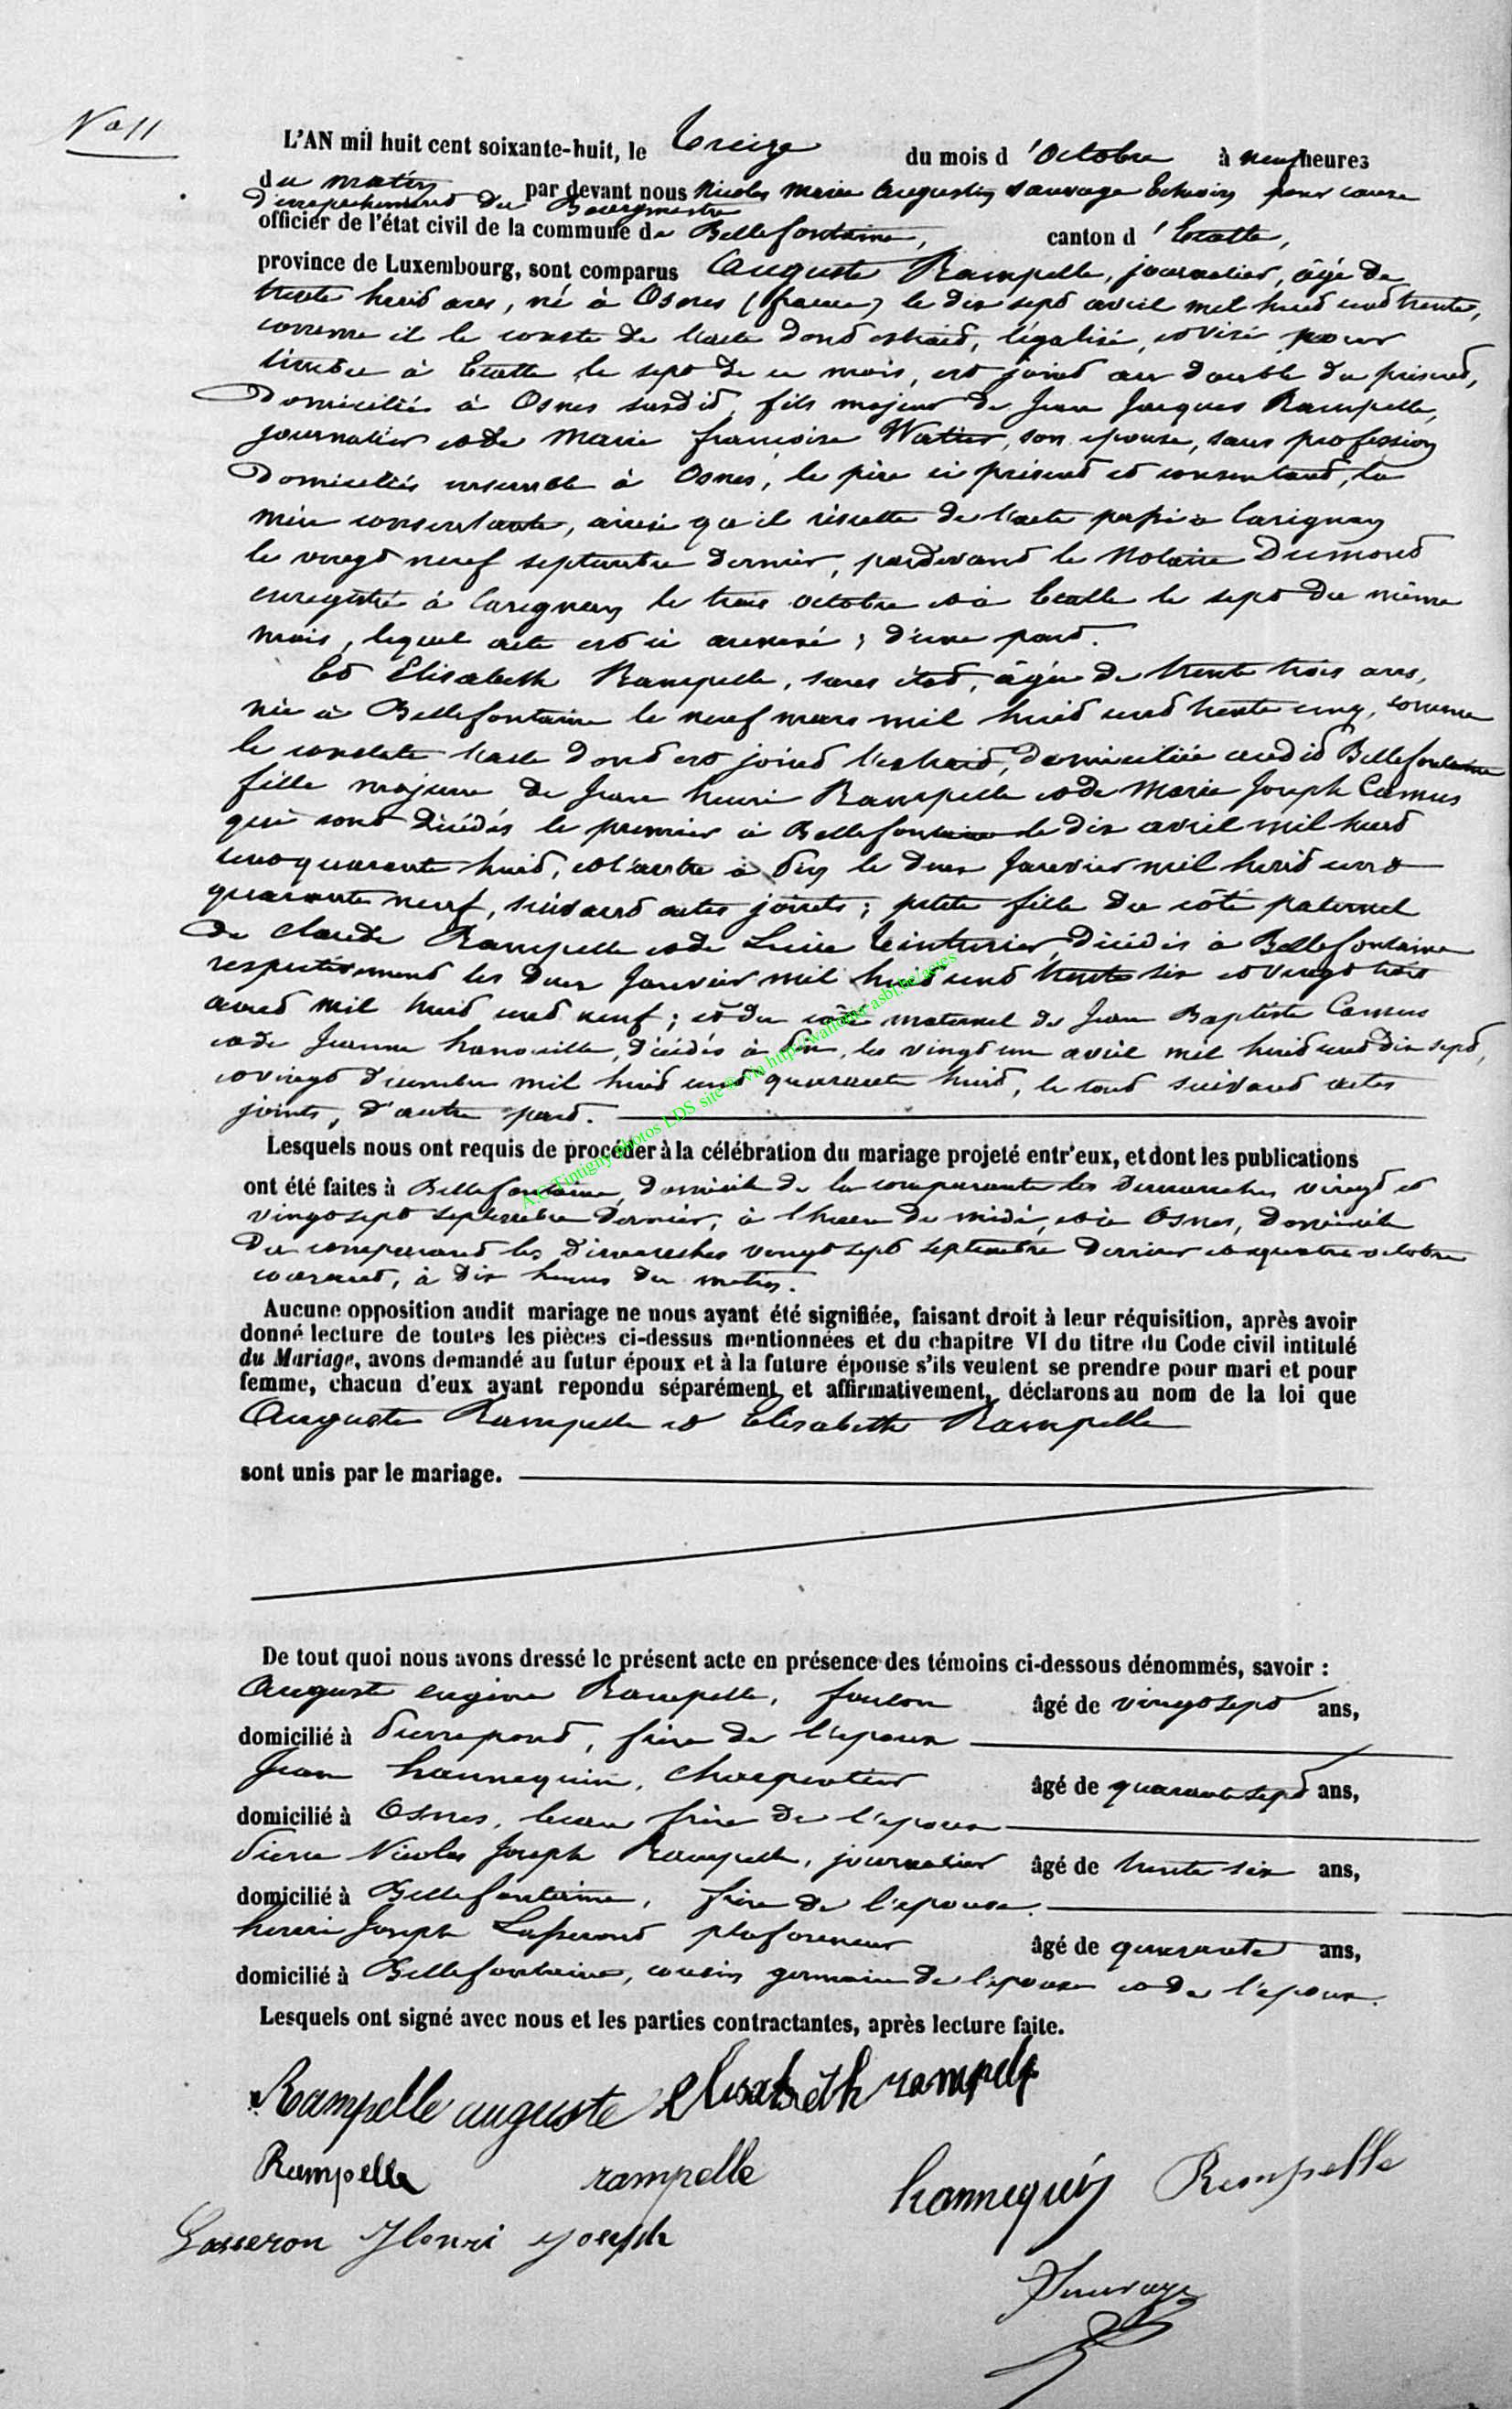 No 11
L'AN mil huit cent soixante-huit, le treize du mois d'octobre à neuf heures
du matin par devant nous Nicolas Marie Augustin Sauvage Echevin pour cause
d'empechement du Bourgmestre
officier de l'état civil de la commune de Bellefontaine, canton d'Etalle,
province de Luxembourg, sont comparus Auguste Rampelle, journalier, âgé de
trente huit ans, né à Osnes (france) le dix sept avril mil huit cent trente,
comme il le conste de l'acte dont extrait, légalisé, et visé pour
timbre à Etalle le sept de ce mois, est joint au double du présent,
Domicilié à Osnes susdit, fils majeur de Jean Jacques Rampelle,
journalier et de Marie françoise Watier, son épouse, sans profession
Domiciliés ensemble à Osnes, le père ici présent et consentant, la
mère consentante, ainsi qu'il résulte de l'acte passé à Carignan
le vingt neuf septembre dernier, pardevant le Notaire Dumont
enregistré à Carignan le trois octobre et à Etalle le sept du même
mois, lequel acte est ici annexé ; d'une part.
Et Elisabeth Rampelle, sans état, âgée de trente trois ans,
née à Bellefontaine le neuf mars mil huit cent trente cinq, comme
le constate l'acte dont est joint l'extrait, domiciliée audit Bellefontaine
fille majeure de Jean henri Rampelle et de Marie Joseph Camus
qui sont décédés le premier à Bellefontaine le dix avril mil huit
cent quarante huit, et l'autre à Tin le deux Janvier mil huit cent
quarante neuf, suivant actes joints ; petite fille du côté paternel
de Claude Rampelle et de Lucie Teinturier, décédés à Bellefontaine
respectivement les deux Janvier mil huit cent trente six et vingt trois
avril mil huit cent neuf ; et du côté maternel de Jean Baptiste Camus
et de Jeanne hanouille, décédés à Tin, les vingt un avril mil huit cent dix sept,
et vingt décembre mil huit cent quarante huit, le tout suivant actes
joints, d'autre part.
Lesquels nous ont requis de procéder à la célébration du mariage projeté entr'eux, et dont les publications
ont été faites à Bellefontaine, domicile de la comparante les Dimanches vingt et
vingt sept septembre dernier, à l'heure de midi, et à Osnes, domicile
du comparant les Dimanches vingt sept septembre dernier et quatre octobre
courant, à dix heures du matin.
Aucune opposition audit mariage ne nous ayant été signifiée, faisant droit à leur réquisition, après avoir
donné lecture de toutes les pièces ci-dessus mentionnées et du chapitre VI du titre du Code civil intitulé
du Mariage, avons demandé au futur époux et à la future épouse s'ils veulent se prendre pour mari et pour
femme, chacun d'eux ayant repondu séparément et affirmativement, déclarons au nom de la loi que
Auguste Rampelle et Elisabeth Rampelle
sont unis par le mariage.
De tout quoi nous avons dressé le présent acte en présence des témoins ci-dessous dénommés, savoir :
Auguste eugène Rampelle, foulon âgé de vingt sept ans,
domicilié à Pierrepont, frère de l'époux
Jean hannequin, charpentier âgé de quarante sept ans,
domicilié à Osnes, beau frère de l'époux
Pierre Nicolas Joseph Rampelle, journalier âgé de trente six ans,
domicilié à Bellefontaine, frère de l'épouse.
henri Joseph Lasseront plafonneur âgé de quarante ans,
domicilié à Bellefontaine, cousin germain de l'épouse et de l'époux.
Lesquels ont signé avec nous et les parties contractantes, après lecture faite.
Rampelle auguste elisabeth rampelle
Rampelle rampelle hannequin Rampelle
Lasseron Henri Joseph
Sauvage
A.C. Tintigny photos LDS site © via http://wallonia-asbl.be/actes